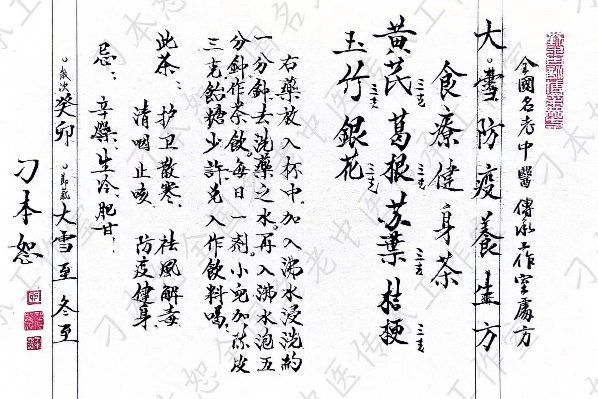 全國名老中醫傳承工作室處方
大雪防疫養生方
食療健身茶
黃芪三克 葛根三克 苏葉三克 桔梗三克
玉竹三克 銀花三克
右藥放入杯中加入沸水浸洗約
一分鈡去洗藥之水再入沸水泡五
分鈡作茶飲。每日一剂小兒加陈皮
三克飴糖少許兑入作飲料喝。
此茶:护卫散寒、祛風解毒
清咽止咳 防疫健身
忌:辛燥、生冷、肥甘
歲次癸卯 節氣大雪至冬至
刁本恕